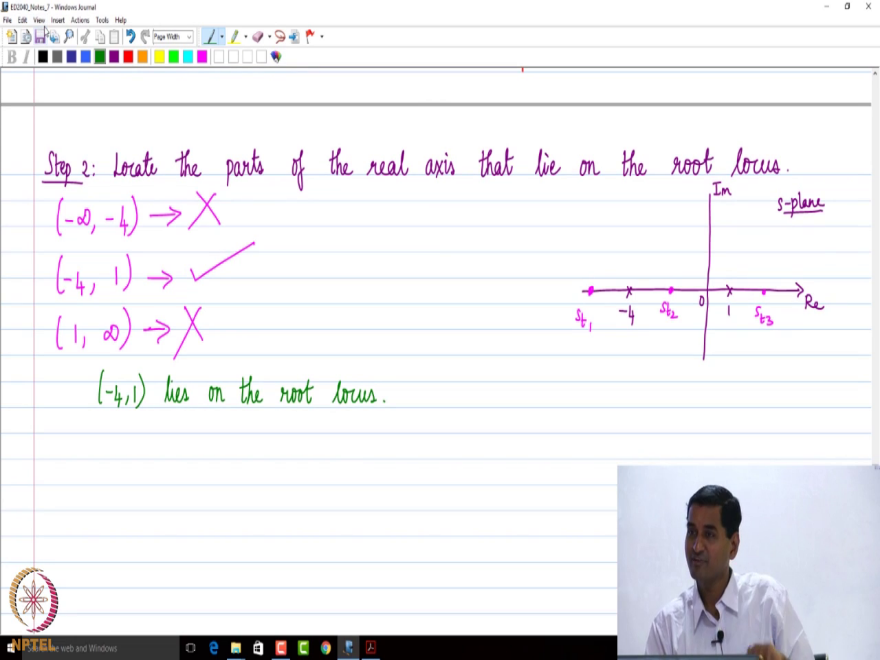 ED2040_Notes_7 - Windows Journal
File Edit View Insert Actions Tools Help
Page Width
B I
Step 2: Locate the parts of the real axis that lie on the root locus.
(-∞, -4) → X
(-4, 1) → ✓
(1, ∞) → X
(-4,1) lies on the root locus.
Im
s-plane
St1 -4 St2 0 1 St3 Re
NPTEL
Search the web and Windows